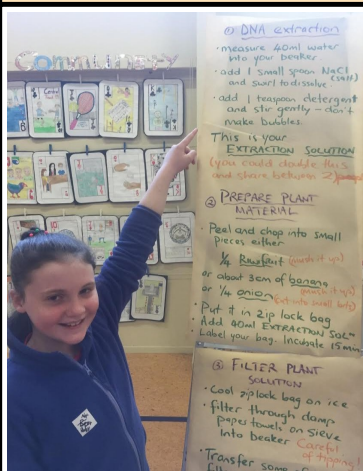 Community
① DNA extraction
• measure 40ml water
into your beaker
• add 1 small spoon NaCl
(salt)
and swirl to dissolve.
• add 1 teaspoon detergent
and stir gently – don't
make bubbles.
This is your
EXTRACTION SOLUTION
(you could double this
and share between 2)
② PREPARE PLANT
MATERIAL
Peel and chop into small
pieces either
1/4 Kiwifruit (mush it up)
or about 3cm of banana
(mush it up)
or 1/4 onion (cut into small bits)
Put it in zip lock bag
Add 40ml EXTRACTION SOLN
Label your bag. Incubate 15 min
③ FILTER PLANT
SOLUTION
• Cool ziplock bag on ice
• filter through damp
paper towels on sieve
into beaker Careful
of tipping
• Transfer some of